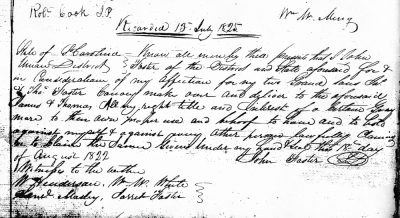 Robt Cook J.P. Wm W. Mercy
Recorded 19 July 1825
State of S Carolina Know all men by these presents that I John
Union District Foster of the District and State aforesaid for &
in Consideration of my affection for my two Sons James
& Thos Foster make over and deliver to the aforesaid
James & Thomas All my right title and Interest of a Certain Gray
mare to their own proper use and behoof to have and to hold
against myself & against every other person lawfully Claiming
or to Claim the Same Given under my hand & Seal this 12th day
of August 1822 John Foster
Witness to the within
W Henderson, Wm W. White
Mabry, Jarret Foster